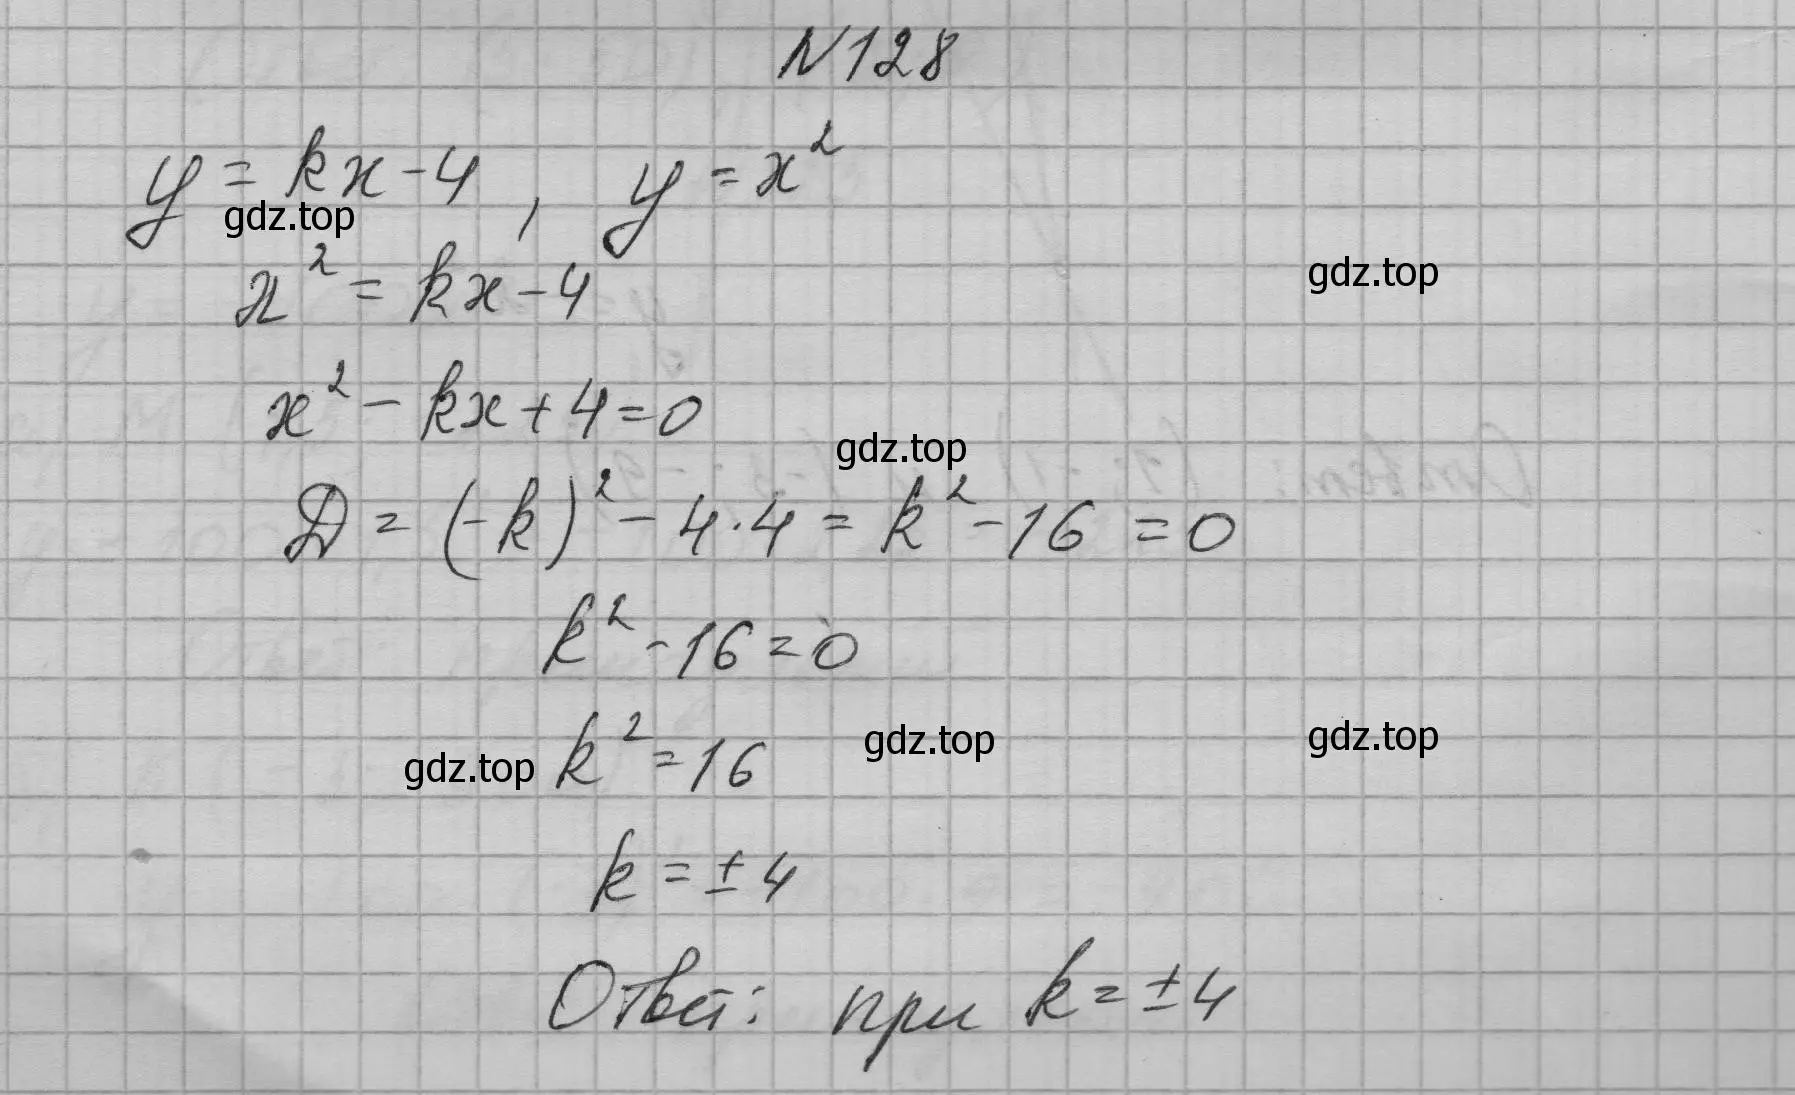 N128
y = kx - 4, y = x²
gdz.top
x² = kx - 4
gdz.top
x² - kx + 4 = 0
gdz.top
D = (-k)² - 4·4 = k² - 16 = 0
k² - 16 = 0
gdz.top k² = 16 gdz.top gdz.top
k = ± 4
Ответ: при k = ± 4